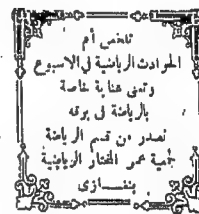 تلخص أم
الحوادث الرياضية في الاسبوع
وتعنى عناية خاصة
بالرياضة في برقه
تصدر من قسم الرياضة
جمعية عمر المختار الرياضية
بنغازى